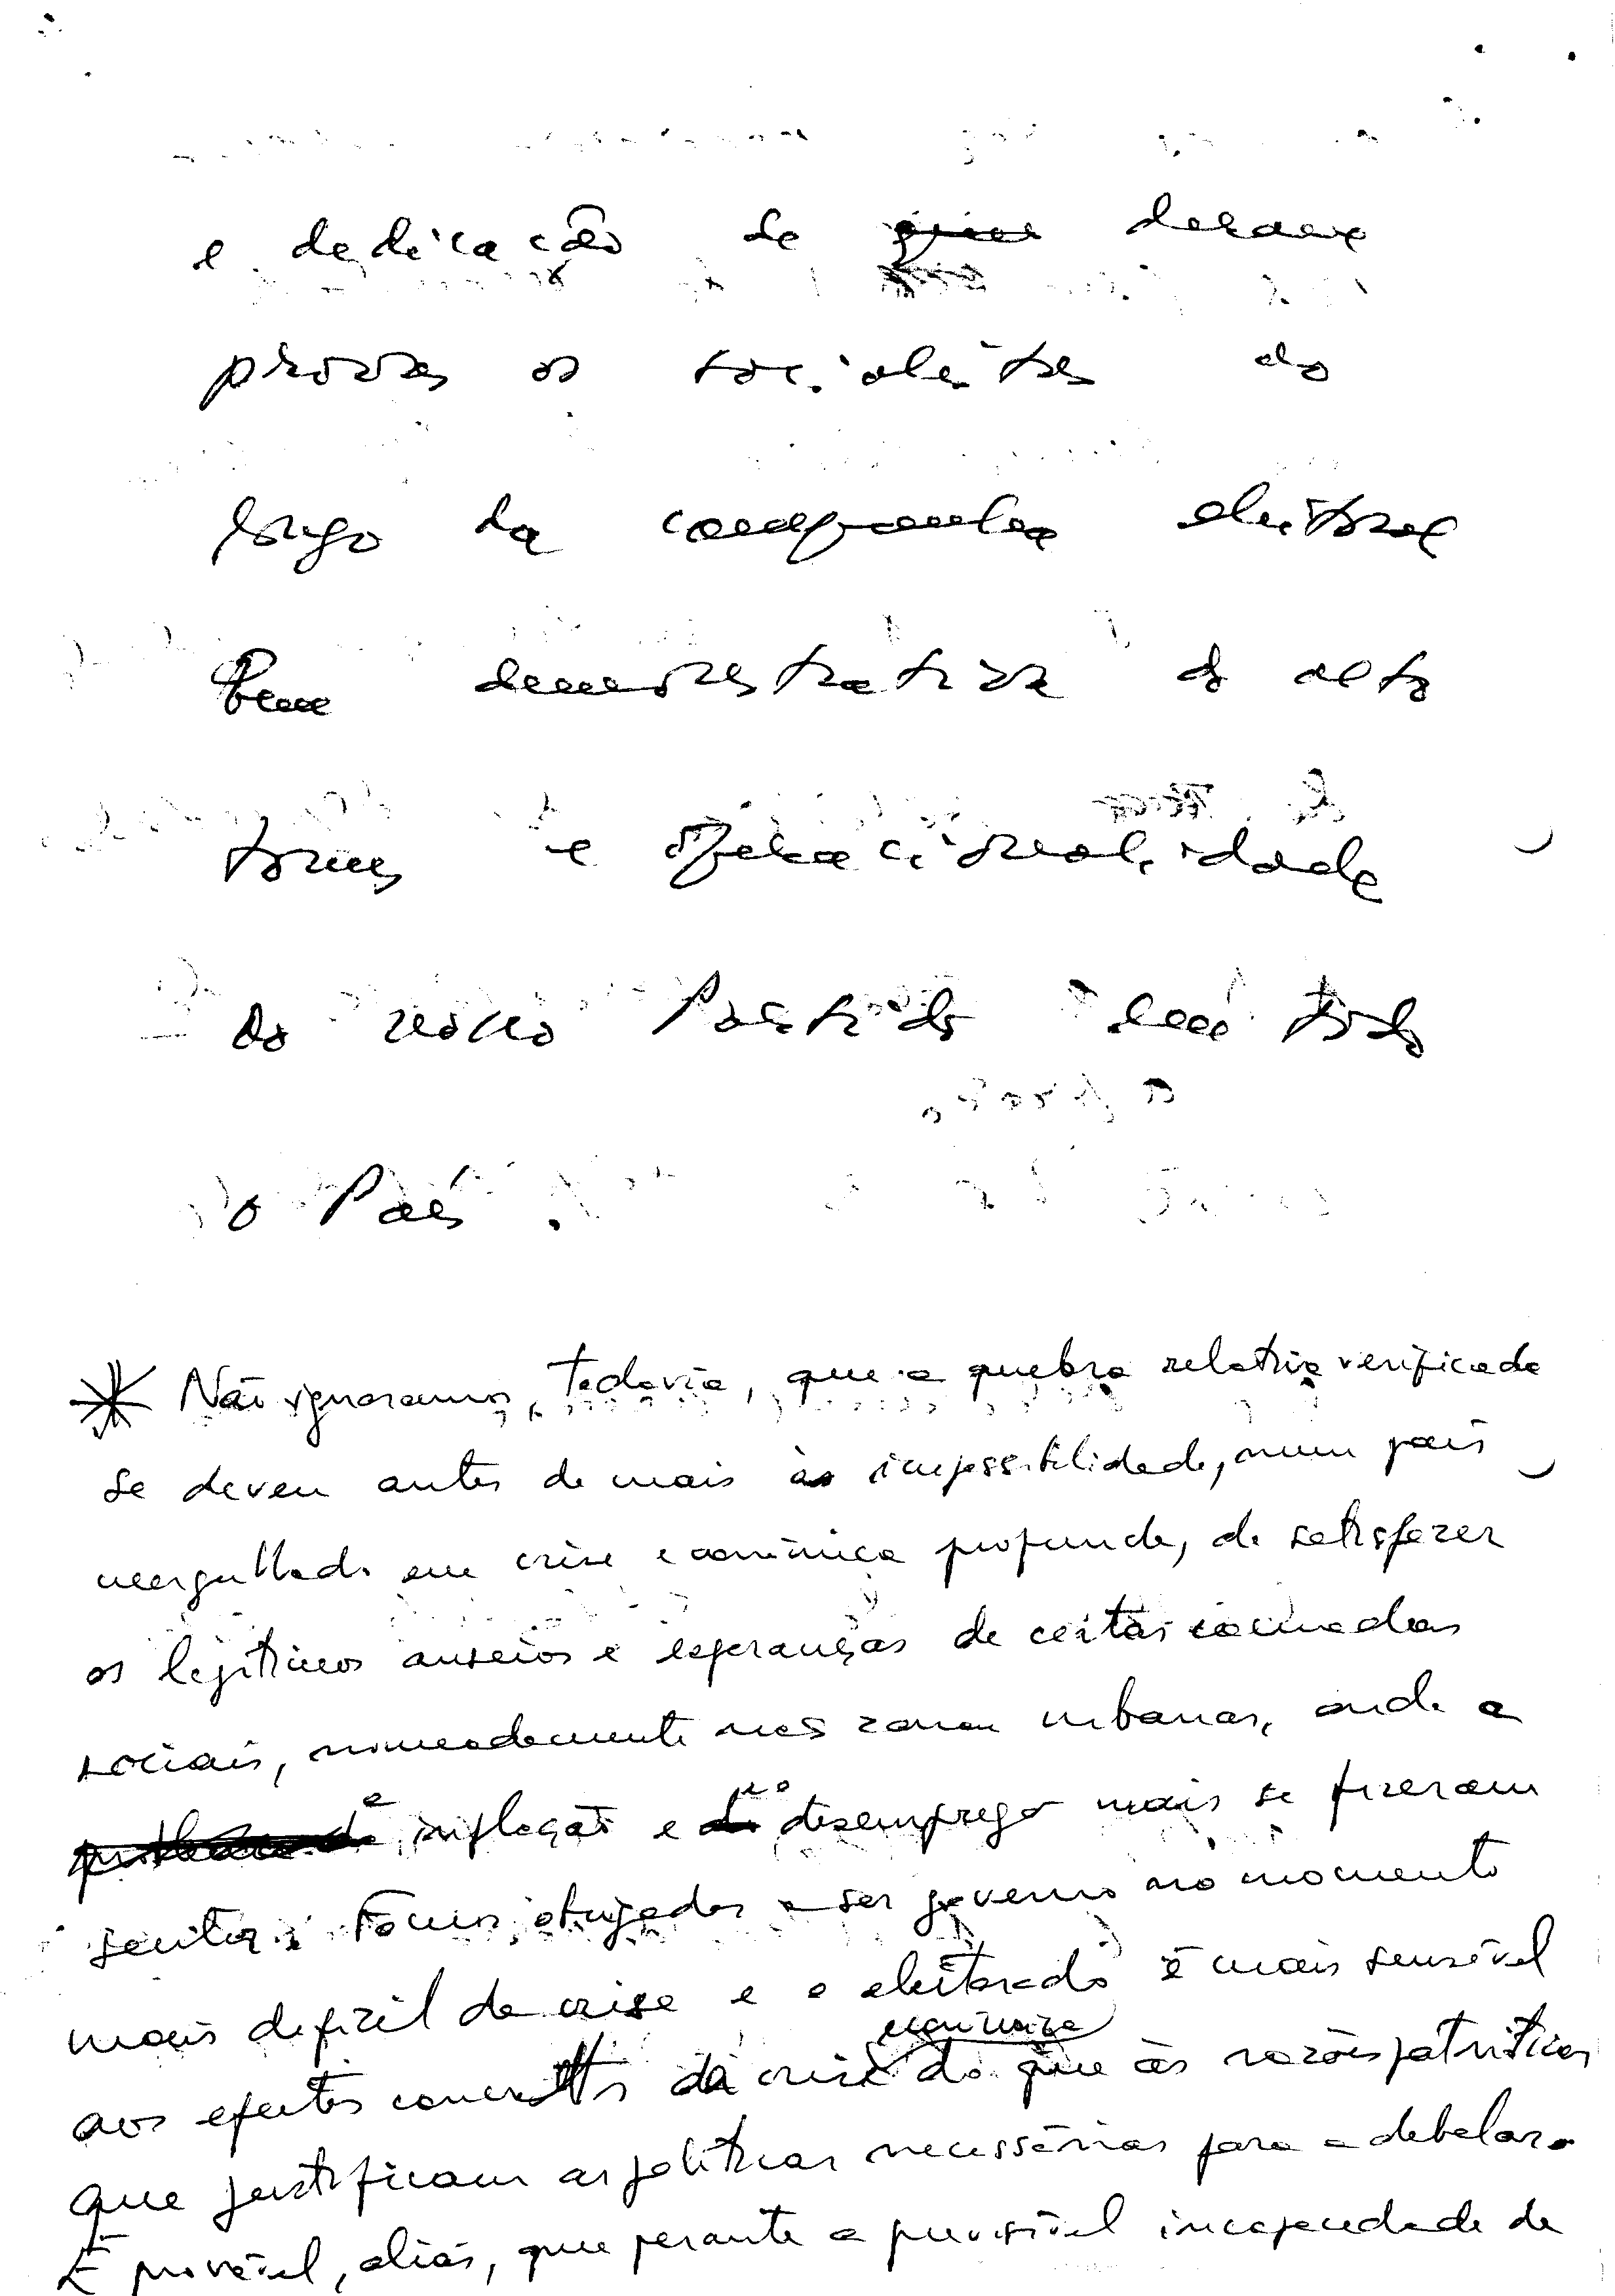 e dedicação de que deram
provas os socialistas ao
longo da campanha eleitoral
bem demonstrativa do alto
e operacionalidade
do nosso Partido em todo
o País.
* Não ignoramos, todavia, que a quebra relativa verificada
se deveu antes de mais à impossibilidade, num país
mergulhado em crise económica profunda, de satisfazer
os legítimos anseios e esperanças de certas camadas
sociais, nomeadamente nas zonas urbanas, onde a
a inflação e o desemprego mais se fizeram
sentir. Fomos obrigados a ser governo no momento
mais difícil da crise e o eleitorado é mais sensível
económica
aos efeitos concretos da crise do que às razões patrióticas
que justificam as políticas necessárias para a debelar.
É provável, aliás, que perante a previsível incapacidade de